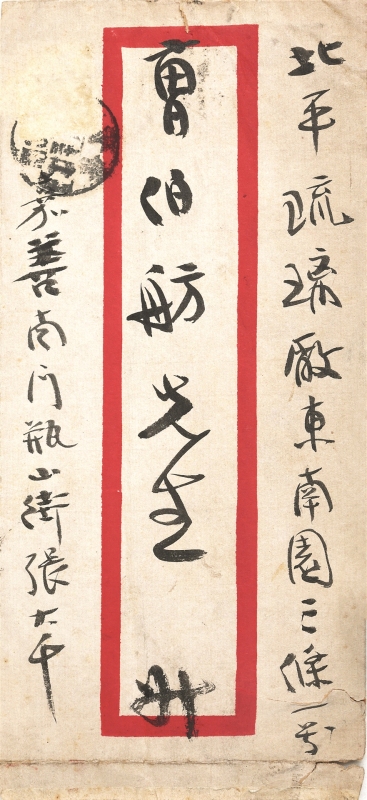 北平琉璃廠東南園三條一号
曹伯舫先生 升
嘉善南门瓶山街張大千